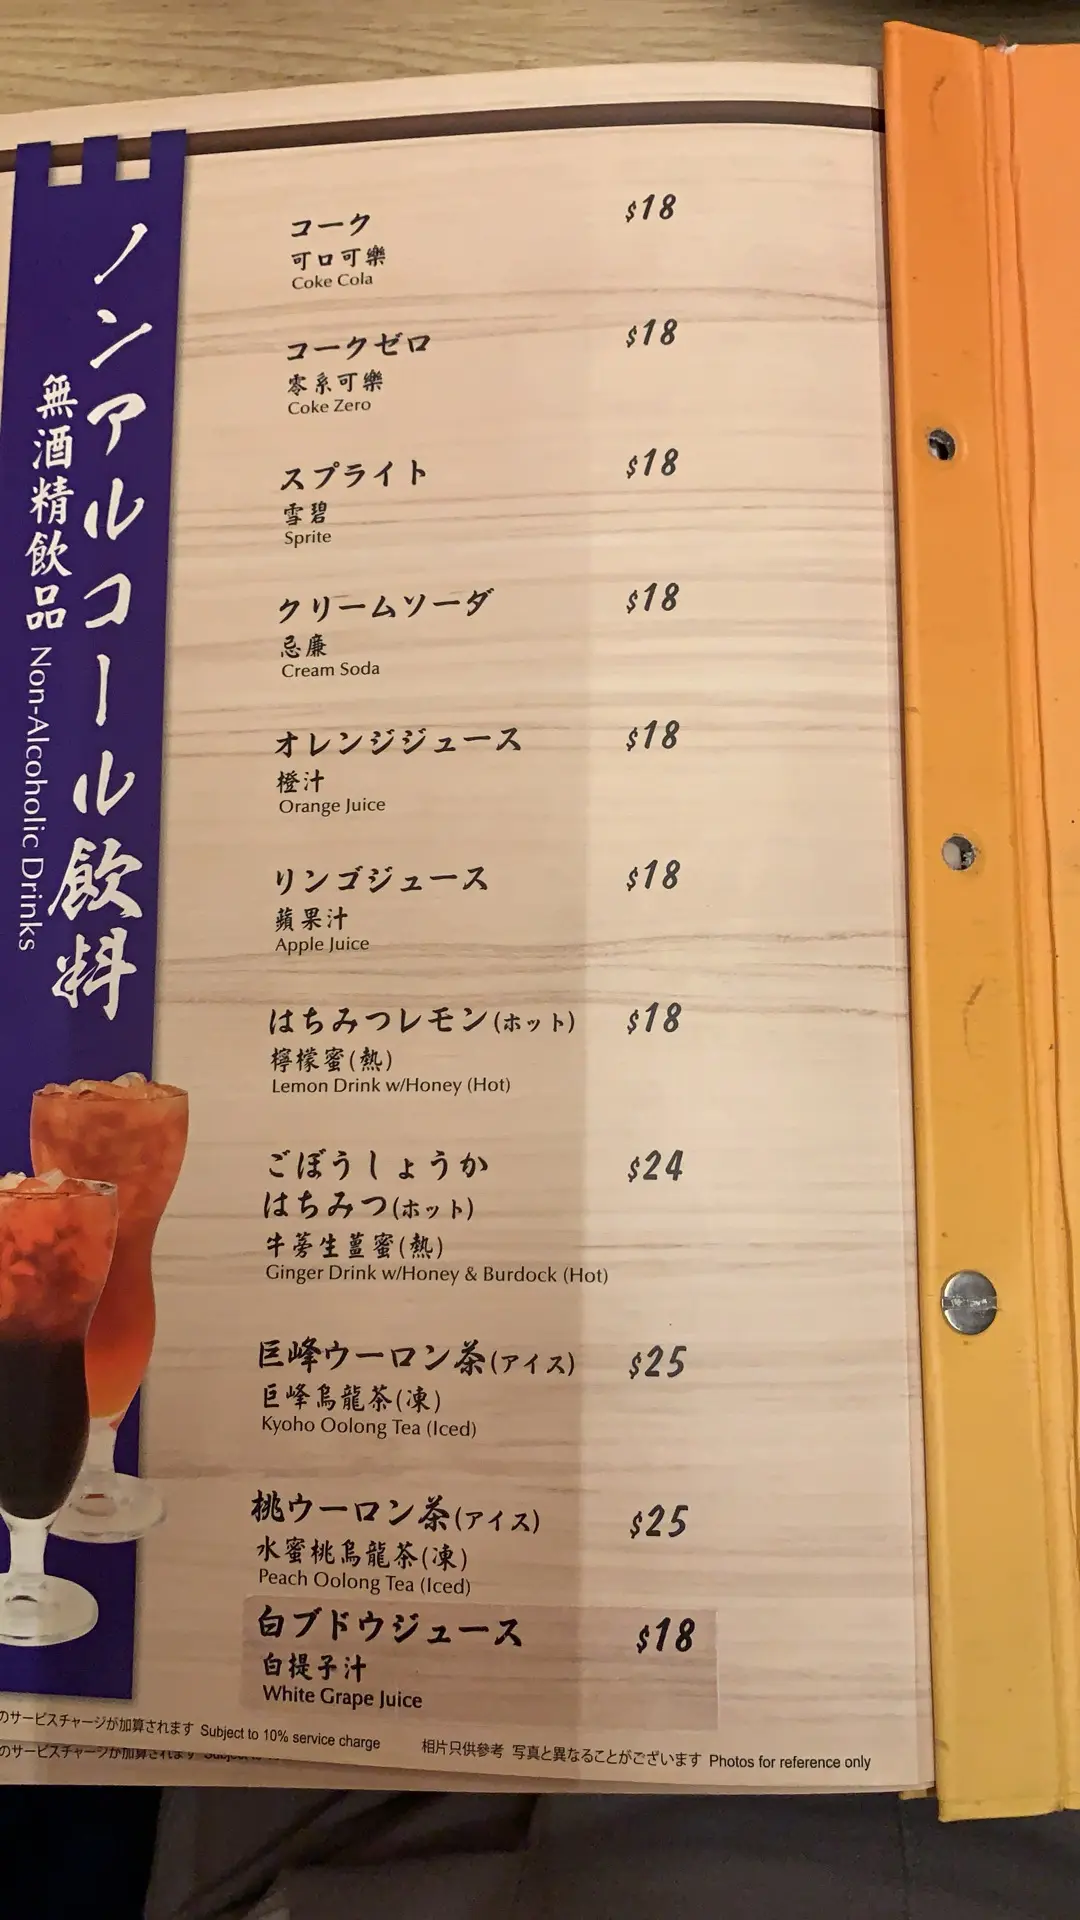 ノンアルコール飲料
無酒精飲品 Non-Alcoholic Drinks
コーク $18
可口可樂
Coke Cola
コークゼロ $18
零系可樂
Coke Zero
スプライト $18
雪碧
Sprite
クリームソーダ $18
忌廉
Cream Soda
オレンジジュース $18
橙汁
Orange Juice
リンゴジュース $18
蘋果汁
Apple Juice
はちみつレモン(ホット) $18
檸檬蜜(熱)
Lemon Drink w/Honey (Hot)
ごぼうしょうか $24
はちみつ(ホット)
牛蒡生薑蜜(熱)
Ginger Drink w/Honey & Burdock (Hot)
巨峰ウーロン茶(アイス) $25
巨峰烏龍茶(凍)
Kyoho Oolong Tea (Iced)
桃ウーロン茶(アイス) $25
水蜜桃烏龍茶(凍)
Peach Oolong Tea (Iced)
白ブドウジュース $18
白提子汁
White Grape Juice
のサービスチャージが加算されます Subject to 10% service charge 相片只供參考 写真と異なることがございます Photos for reference only
のサービスチャージが加算されます